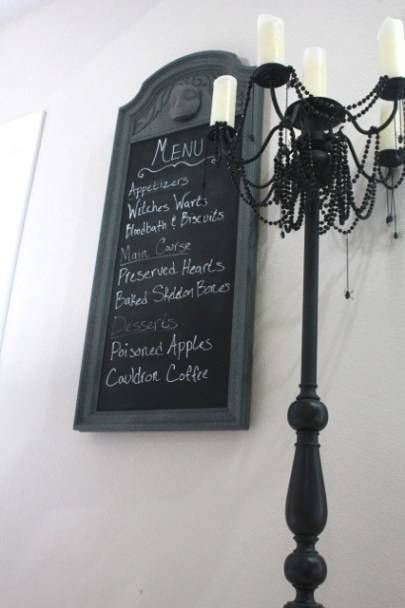 MENU
Appetizers
Witches Warts
Bloodbath & Biscuits
Main Course
Preserved Hearts
Baked Skeleton Bones
Desserts
Poisoned Apples
Cauldron Coffee